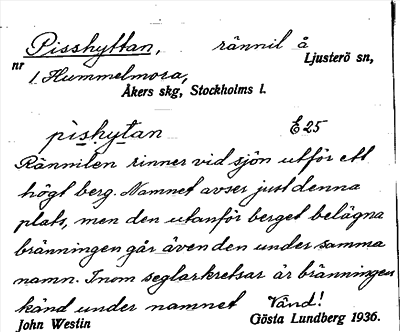 Pisshyttan, rännil å
nr Ljusterö sn,
1. Hummelmora,
Åkers skg, Stockholms l.
pishytan E25
Rännilen rinner vid sjön utför ett
högt berg. Namnet avser just denna
plats, men den utanför berget belägna
bränningen går även den under samma
namn. Inom seglarkretsar är bränningen
känd under namnet Vänd!
John Westin Gösta Lundberg 1936.